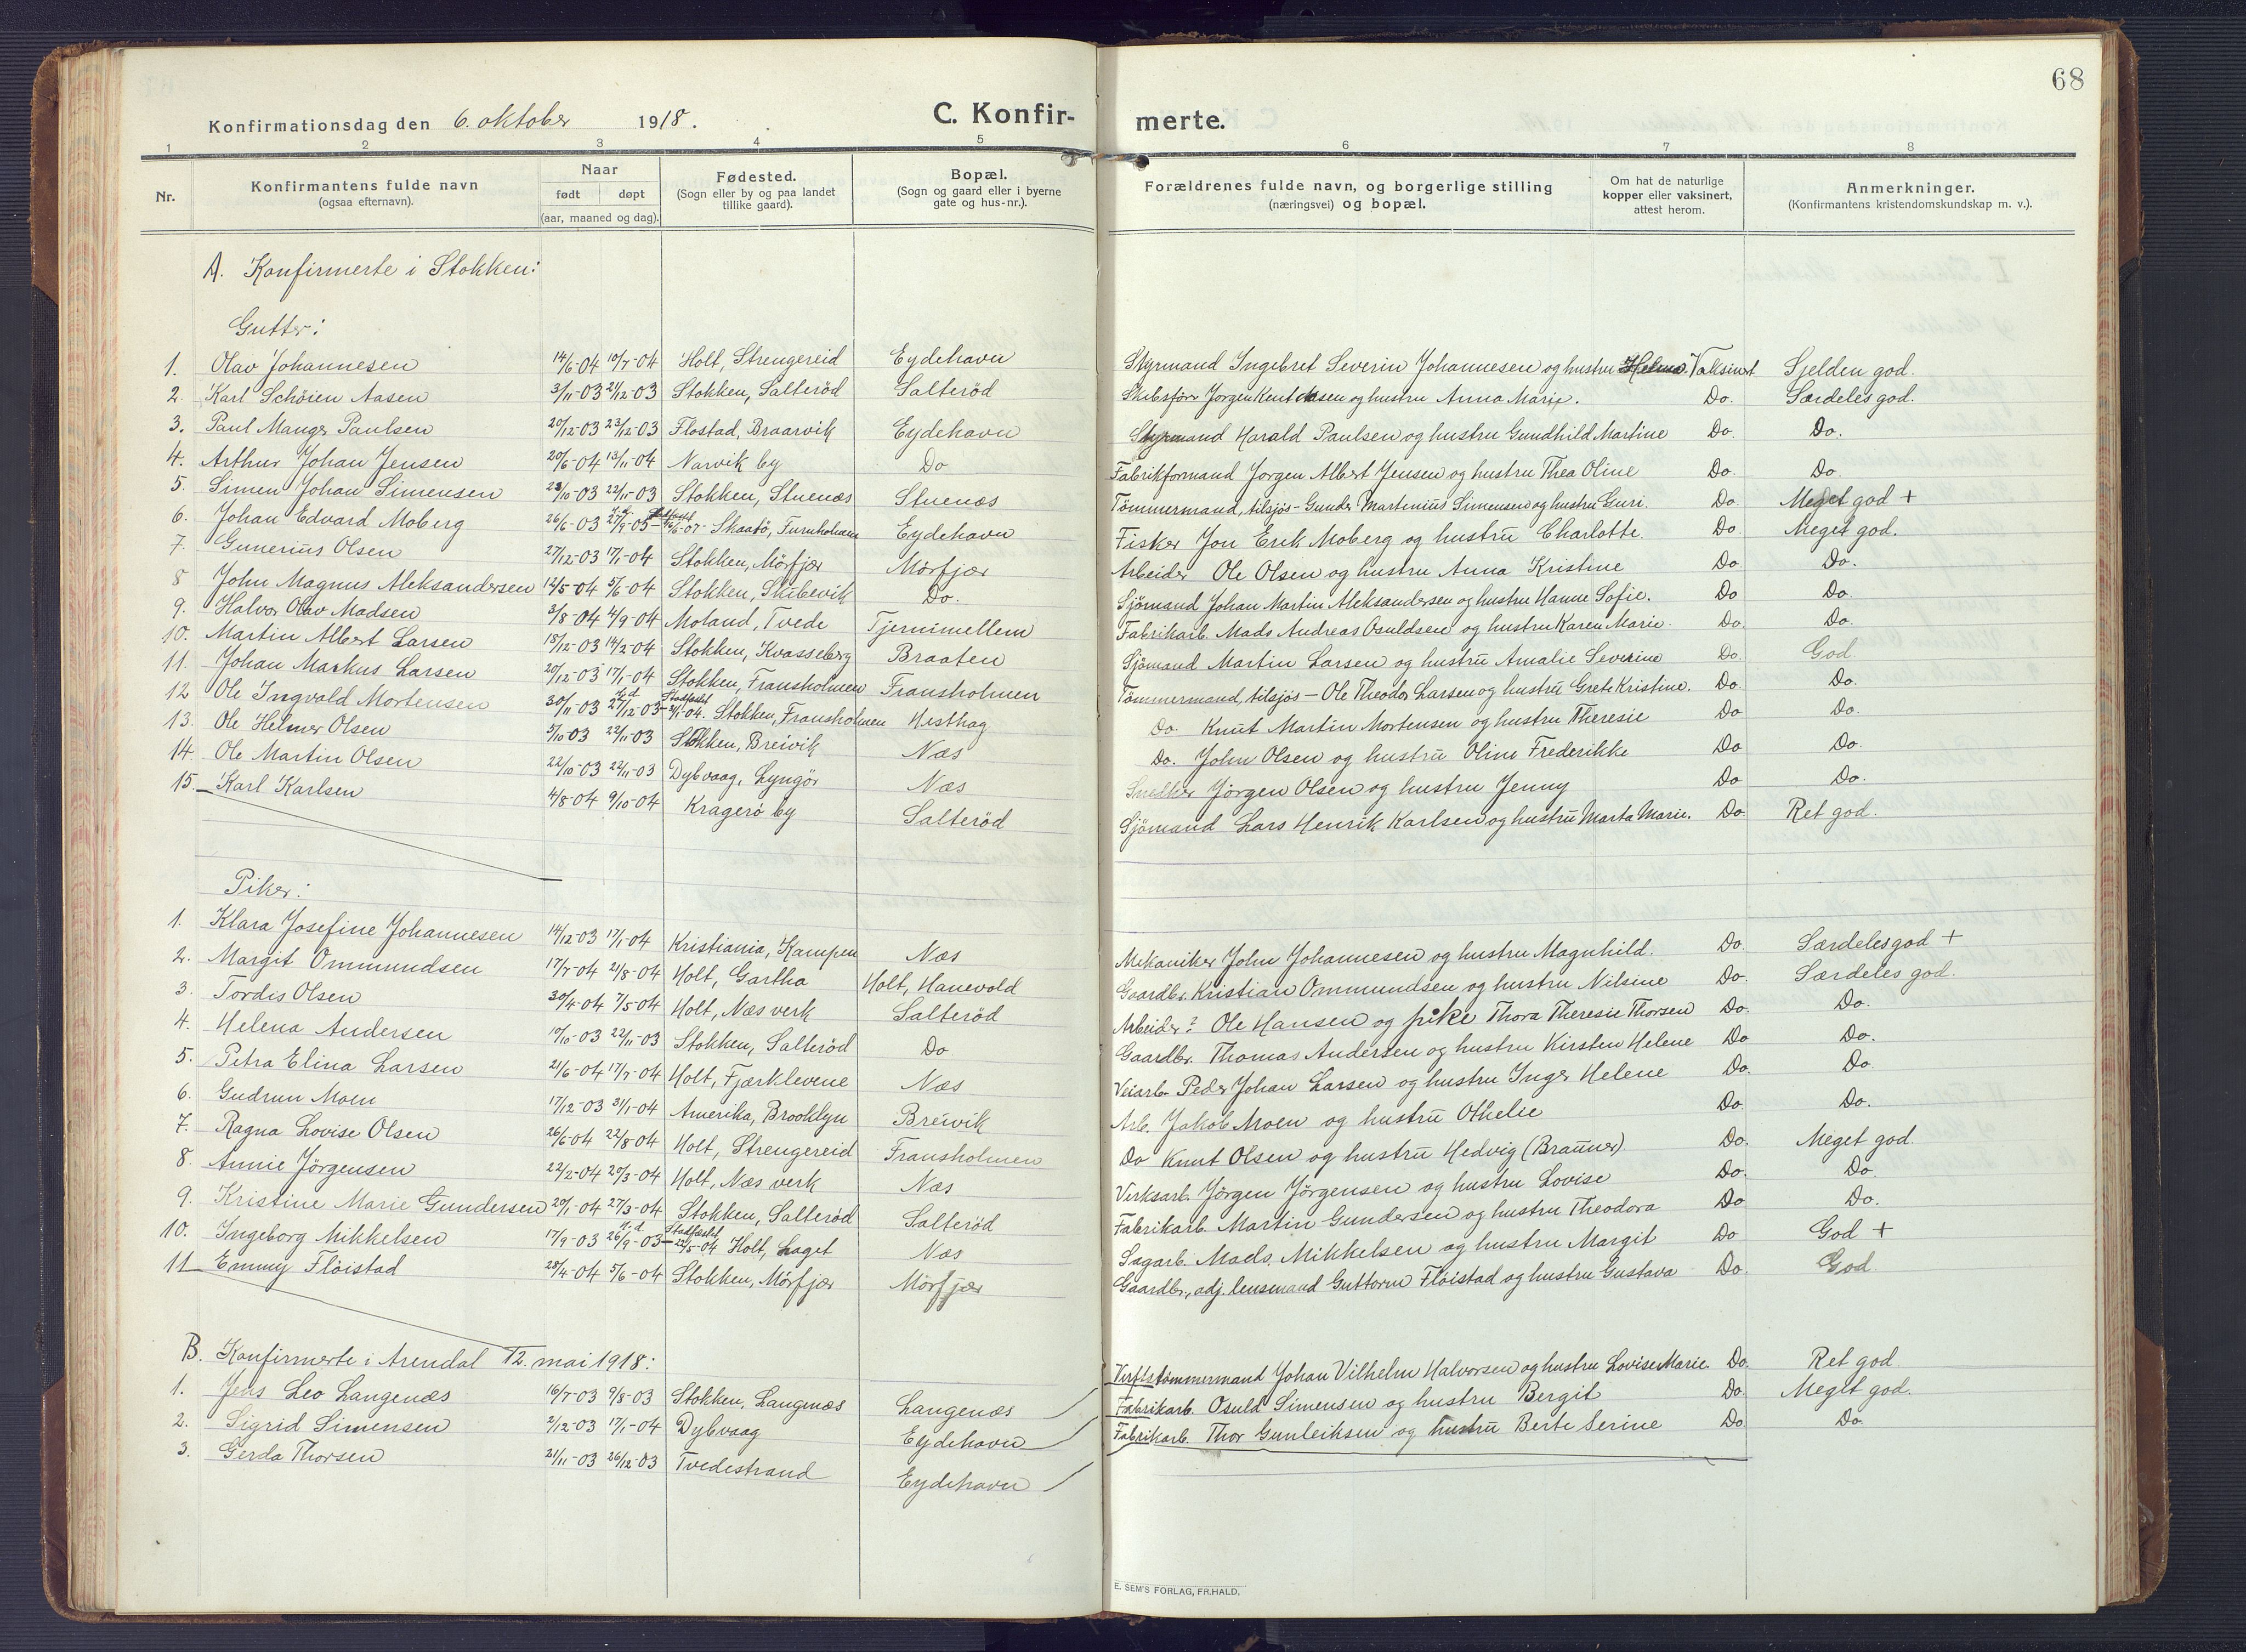 68
Konfirmationsdag den 6. oktober 1918. C. Konfir- merte.
1 2 3 4 5 6 7 8
Nr. Konfirmantens fulde navn (ogsaa efternavn). Naar født døpt (aar, maaned og dag). Fødested. (Sogn eller by og paa landet tillike gaard). Bopæl. (Sogn og gaard eller i byerne gate og hus-nr.). Forældrenes fulde navn, og borgerlige stilling (næringsvei) og bopæl. Om hat de naturlige kopper eller vaksinert, attest herom. Anmerkninger. (Konfirmantens kristendomskundskap m. v.).
A. Konfirmerte i Stokken:
Gutter:
1. Olav Johannesen 14/6-04 10/7-04 Holt, Strengereid Eydehavn Styrmand Ingebret Severin Johannesen og hustru Helma. Vaksinert Sjelden god.
2. Karl Schöien Aasen 3/11-03 21/12-03 Stokken, Salteröd Salteröd Skibsför Jorgen Aasen og hustru Anna Marie. Do. Særdeles god.
3. Paul Manger Paulsen 20/12-03 23/12-03 Flostad, Braarvik Eydehavn Styrmand Harald Paulsen og hustru Gundhild Martine Do. Do.
4. Arthur Johan Jensen 20/6-04 13/11-04 Narvik by Do Fabrikformand Jorgen Albert Jensen og hustru Thea Oline Do. Do.
5. Simen Johan Simensen 23/10-03 22/11-03 Stokken, Stuenæs Stuenæs Tömmermand, tilsjös - Gunder Martenius Simensen og hustru Guri. Do. Meget god +
6. Johan Edvard Moberg 26/6-03 27/9-05 - 16/6-07- Skaatö, Furuholmen Eydehavn Fisker Jon Erik Moberg og hustru Charlotte. Do. Meget god.
7. Gunerius Olsen 27/12-03 17/1-04 Stokken, Mörfjær Mörfjær Arbeider Ole Olsen og hustru Anna Kristine Do Do.
8 John Magnus Aleksandersen 12/5-04 5/6-04 Stokken, Skibevik Do. Sjömand Johan Martin Aleksandersen og hustru Hanne Sofie. Do Do.
9. Halvor Olav Madsen 3/8-04 4/9-04 Moland, Tvede Tjernimellem Fabrikarb. Mads Andreas Osuldsen og hustru Karen Marie. Do. Do.
10. Martin Albert Larsen 18/12-03 14/2-04 Stokken, Kvasseberg Braaten Sjömand Martin Larsen og hustru Amalie Severine Do. God
11. Johan Markus Larsen 20/12-03 17/1-04 Stokken, Fransholmen Fransholmen Tömmermand, tilsjös - Ole Theodor Larsen og hustru Grete Kristine. Do. Do.
12 Ole Ingvald Mortensen 30/11-03 27/12-03 - 31/1-04. Stokken, Fransholmen Hesthag Do. Knut Martin Mortensen og hustru Theresie Do Do.
13. Ole Helmer Olsen 5/10-03 22/11-03 Stokken, Breivik Næs Do. John Olsen og hustru Oline Frederikke Do Do.
14. Ole Martin Olsen 22/10-03 22/11-03 Dybvaag, Lyngör Næs Snedker Jörgen Olsen og hustru Jenny Do Do.
15. Karl Karlsen 4/8-04 9/10-04 Kragerö by Salteröd Sjömand Lars Henrik Karlsen og hustru Marta Marie. Do. Ret god.
Piker:
1. Klara Josefine Johannesen 14/12-03 17/1-04 Kristiania, Kampen Næs Mekaniker John Johannesen og hustru Magnhild. Do. Særdeles god +
2. Margit Ommundsen 17/7-04 21/8-04 Holt, Gartha Holt, Hanevold Gaardbr. Kristian Ommundsen og hustru Nilsine Do. Særdeles god.
3. Tordis Olsen 30/4-04 7/5-04 Holt, Næs verk Salteröd Arbeider? Ole Hansen og pike Thora Theresie Thorsen Do. Do.
4. Helena Andersen 10/10-03 22/11-03 Stokken, Salteröd Do Gaardbr. Thomas Andersen og hustru Kirsten Helene Do Do.
5. Petra Elina Larsen 21/6-04 17/7-04 Holt, Fjærklevene Næs Veiarb. Peder Johan Larsen og hustru Inger Helene Do. Do.
6. Gudrun Moen 17/12-03 31/1-04 Amerika, Brooklyn Breivik Arb. Jakob Moen og hustru Othelie Do. Do.
7. Ragna Lovise Olsen 26/6-04 22/8-04 Holt, Strengereid Fransholmen Do Knut Olsen og hustru Hedvig (Brauner). Do. Meget god.
8. Annie Jörgensen 22/2-04 20/3-04 Holt, Næs verk Næs Verksarb. Jörgen Jörgensen og hustru Lovise Do. Do
9. Kristine Marie Gundersen 20/1-04 27/3-04 Stokken, Salteröd Salteröd Fabrikarb. Martin Gundersen og hustru Theodora Do Do.
10. Ingeborg Mikkelsen 17/9-03 26/9-03 - Stadfæstet 22/5-04 Holt, Laget Næs Sagarb. Mads Mikkelsen og hustru Margit Do God +
11 Emmy Flöistad 28/4-04 5/6-04 Stokken, Mörfjær Mörfjær Gaardbr., adj. lensmand Guttorm Flöistad og hustru Gustava Do. God
B. Konfirmerte i Arendal 12. mai 1918:
1. Jens Leo Langenæs 16/7-03 9/8-03 Stokken, Langenæs Langenæs Verftstömmermand Johan Vilhelm Halvorsen og hustru Lovise Marie. Do. Ret god
2. Sigrid Simensen 2/12-03 17/1-04 Dybvaag Eydehavn Fabrikarb. Osuld Simensen og hustru Bergit Do. Meget god.
3. Gerda Thorsen 21/11-03 26/12-03 Tvedestrand Eydehavn Fabrikarb. Thor Gunleiksen og hustru Berte Serine Do Do.
E. SEM'S FORLAG, FR.HALD.